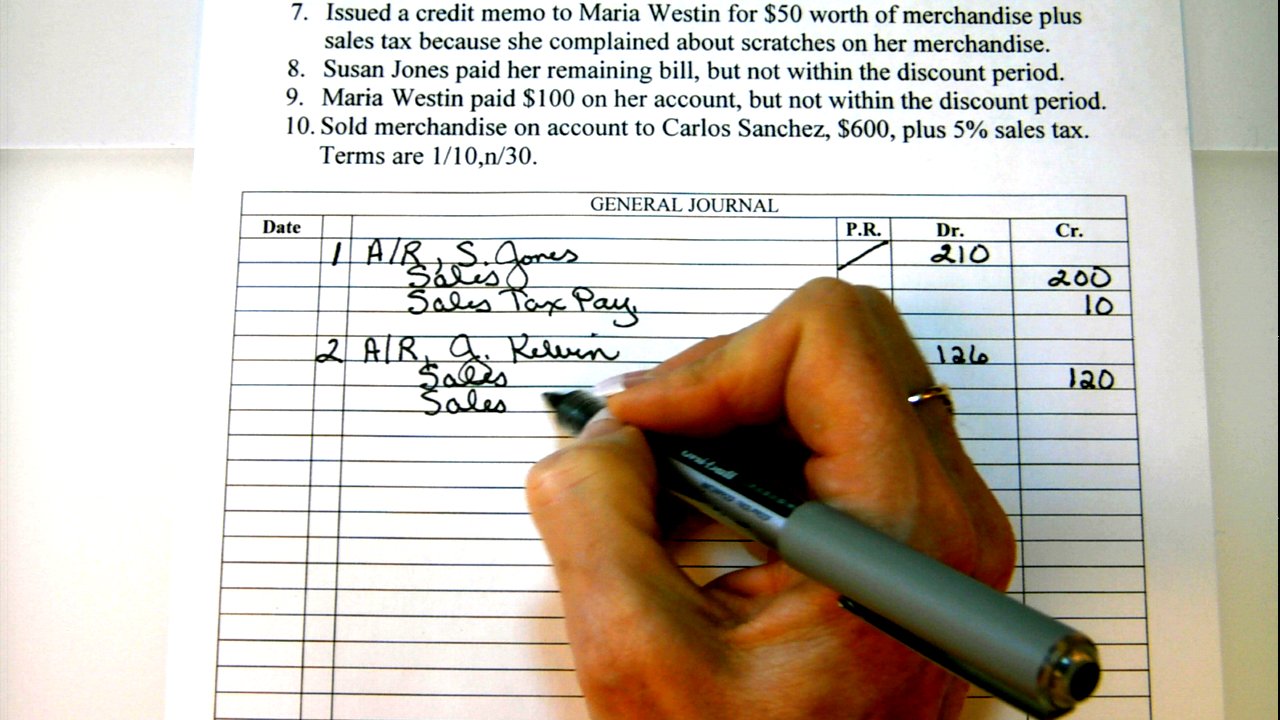 7. Issued a credit memo to Maria Westin for $50 worth of merchandise plus
sales tax because she complained about scratches on her merchandise.
8. Susan Jones paid her remaining bill, but not within the discount period.
9. Maria Westin paid $100 on her account, but not within the discount period.
10. Sold merchandise on account to Carlos Sanchez, $600, plus 5% sales tax.
Terms are 1/10,n/30.
GENERAL JOURNAL
Date P.R. Dr. Cr.
1 A/R, S. Jones 210
Sales 200
Sales Tax Pay. 10
2 A/R, J. Kelvin 126
Sales 120
Sales
uni-ball